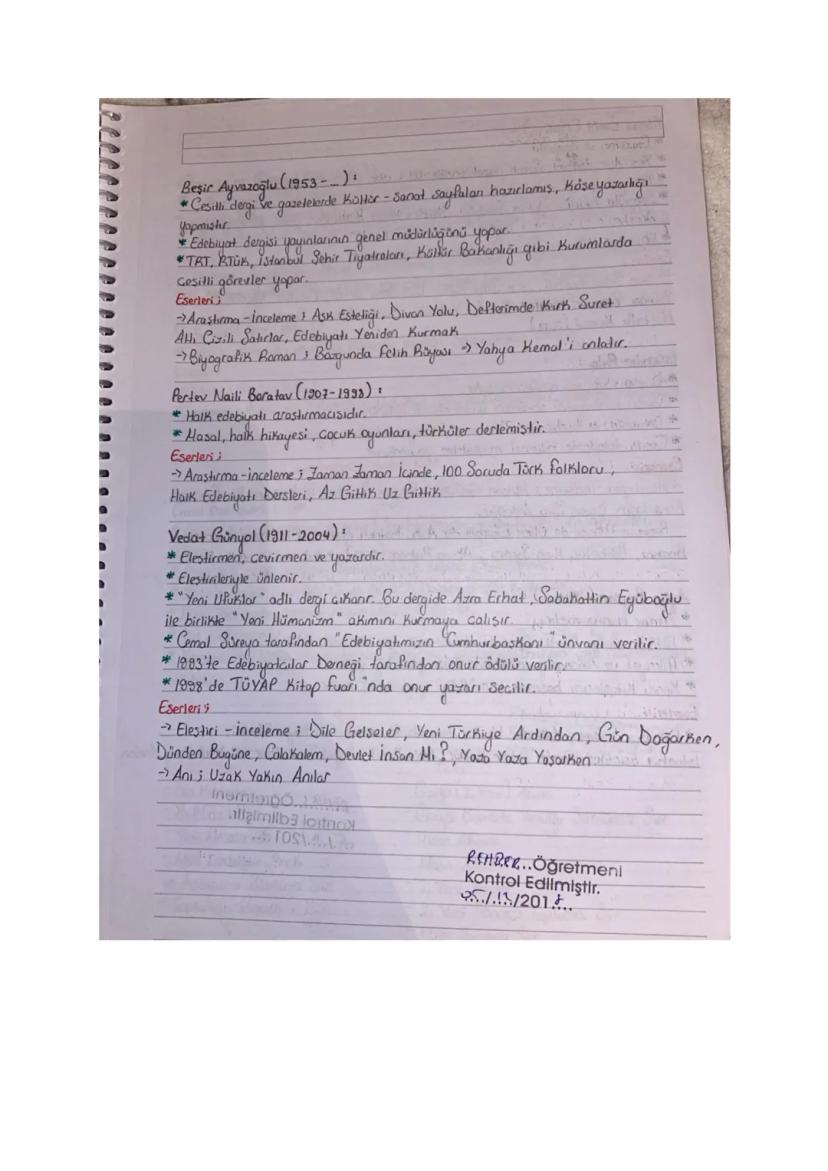 Beşir Ayvazoğlu (1953 - ...) :
* Çeşitli dergi ve gazetelerde Kültür - sanat sayfaları hazırlamış, Köşe yazarlığı
yapmıştır.
* Edebiyat dergisi yayınlarının genel müdürlüğünü yapar.
* TRT, RTÜK, İstanbul Şehir Tiyatroları, Kültür Bakanlığı gibi Kurumlarda
çeşitli görevler yapar.
Eserleri ;
→ Araştırma - İnceleme ; Aşk Estetiği, Divan Yolu, Defterimde Kırk Suret
Altı Çizili Satırlar, Edebiyatı Yeniden Kurmak
→ Biyografik Roman ; Bozgunda Fetih Rüyası → Yahya Kemal'i anlatır.
Pertev Naili Boratav (1907-1998) :
* Halk edebiyatı araştırmacısıdır.
* Masal, halk hikayesi, çocuk oyunları, türküler derlemiştir.
Eserleri ;
→ Araştırma - inceleme ; Zaman Zaman İçinde, 100 Soruda Türk Folkloru,
Halk Edebiyatı Dersleri, Az Gittik Uz Gittik
Vedat Günyol (1911-2004) :
* Eleştirmen, çevirmen ve yazardır.
* Eleştirileriyle ünlenir.
* "Yeni Ufuklar" adlı dergi çıkarır. Bu dergide Azra Erhat, Sabahattin Eyüboğlu
ile birlikte "Yeni Hümanizm" akımını kurmaya çalışır.
* Cemal Süreya tarafından "Edebiyatımızın Cumhurbaşkanı" ünvanı verilir.
* 1993'te Edebiyatçılar Derneği tarafından onur ödülü verilir.
* 1998'de TÜYAP Kitap Fuarı'nda onur yazarı seçilir.
Eserleri ;
→ Eleştiri - inceleme ; Dile Gelseler, Yeni Türkiye Ardından, Gün Doğarken,
Dünden Bugüne, Çalakalem, Devlet İnsan Mı?, Yaza Yaza Yaşarken
→ Anı ; Uzak Yakın Anılar
REHBER...Öğretmeni
Kontrol Edilmiştir.